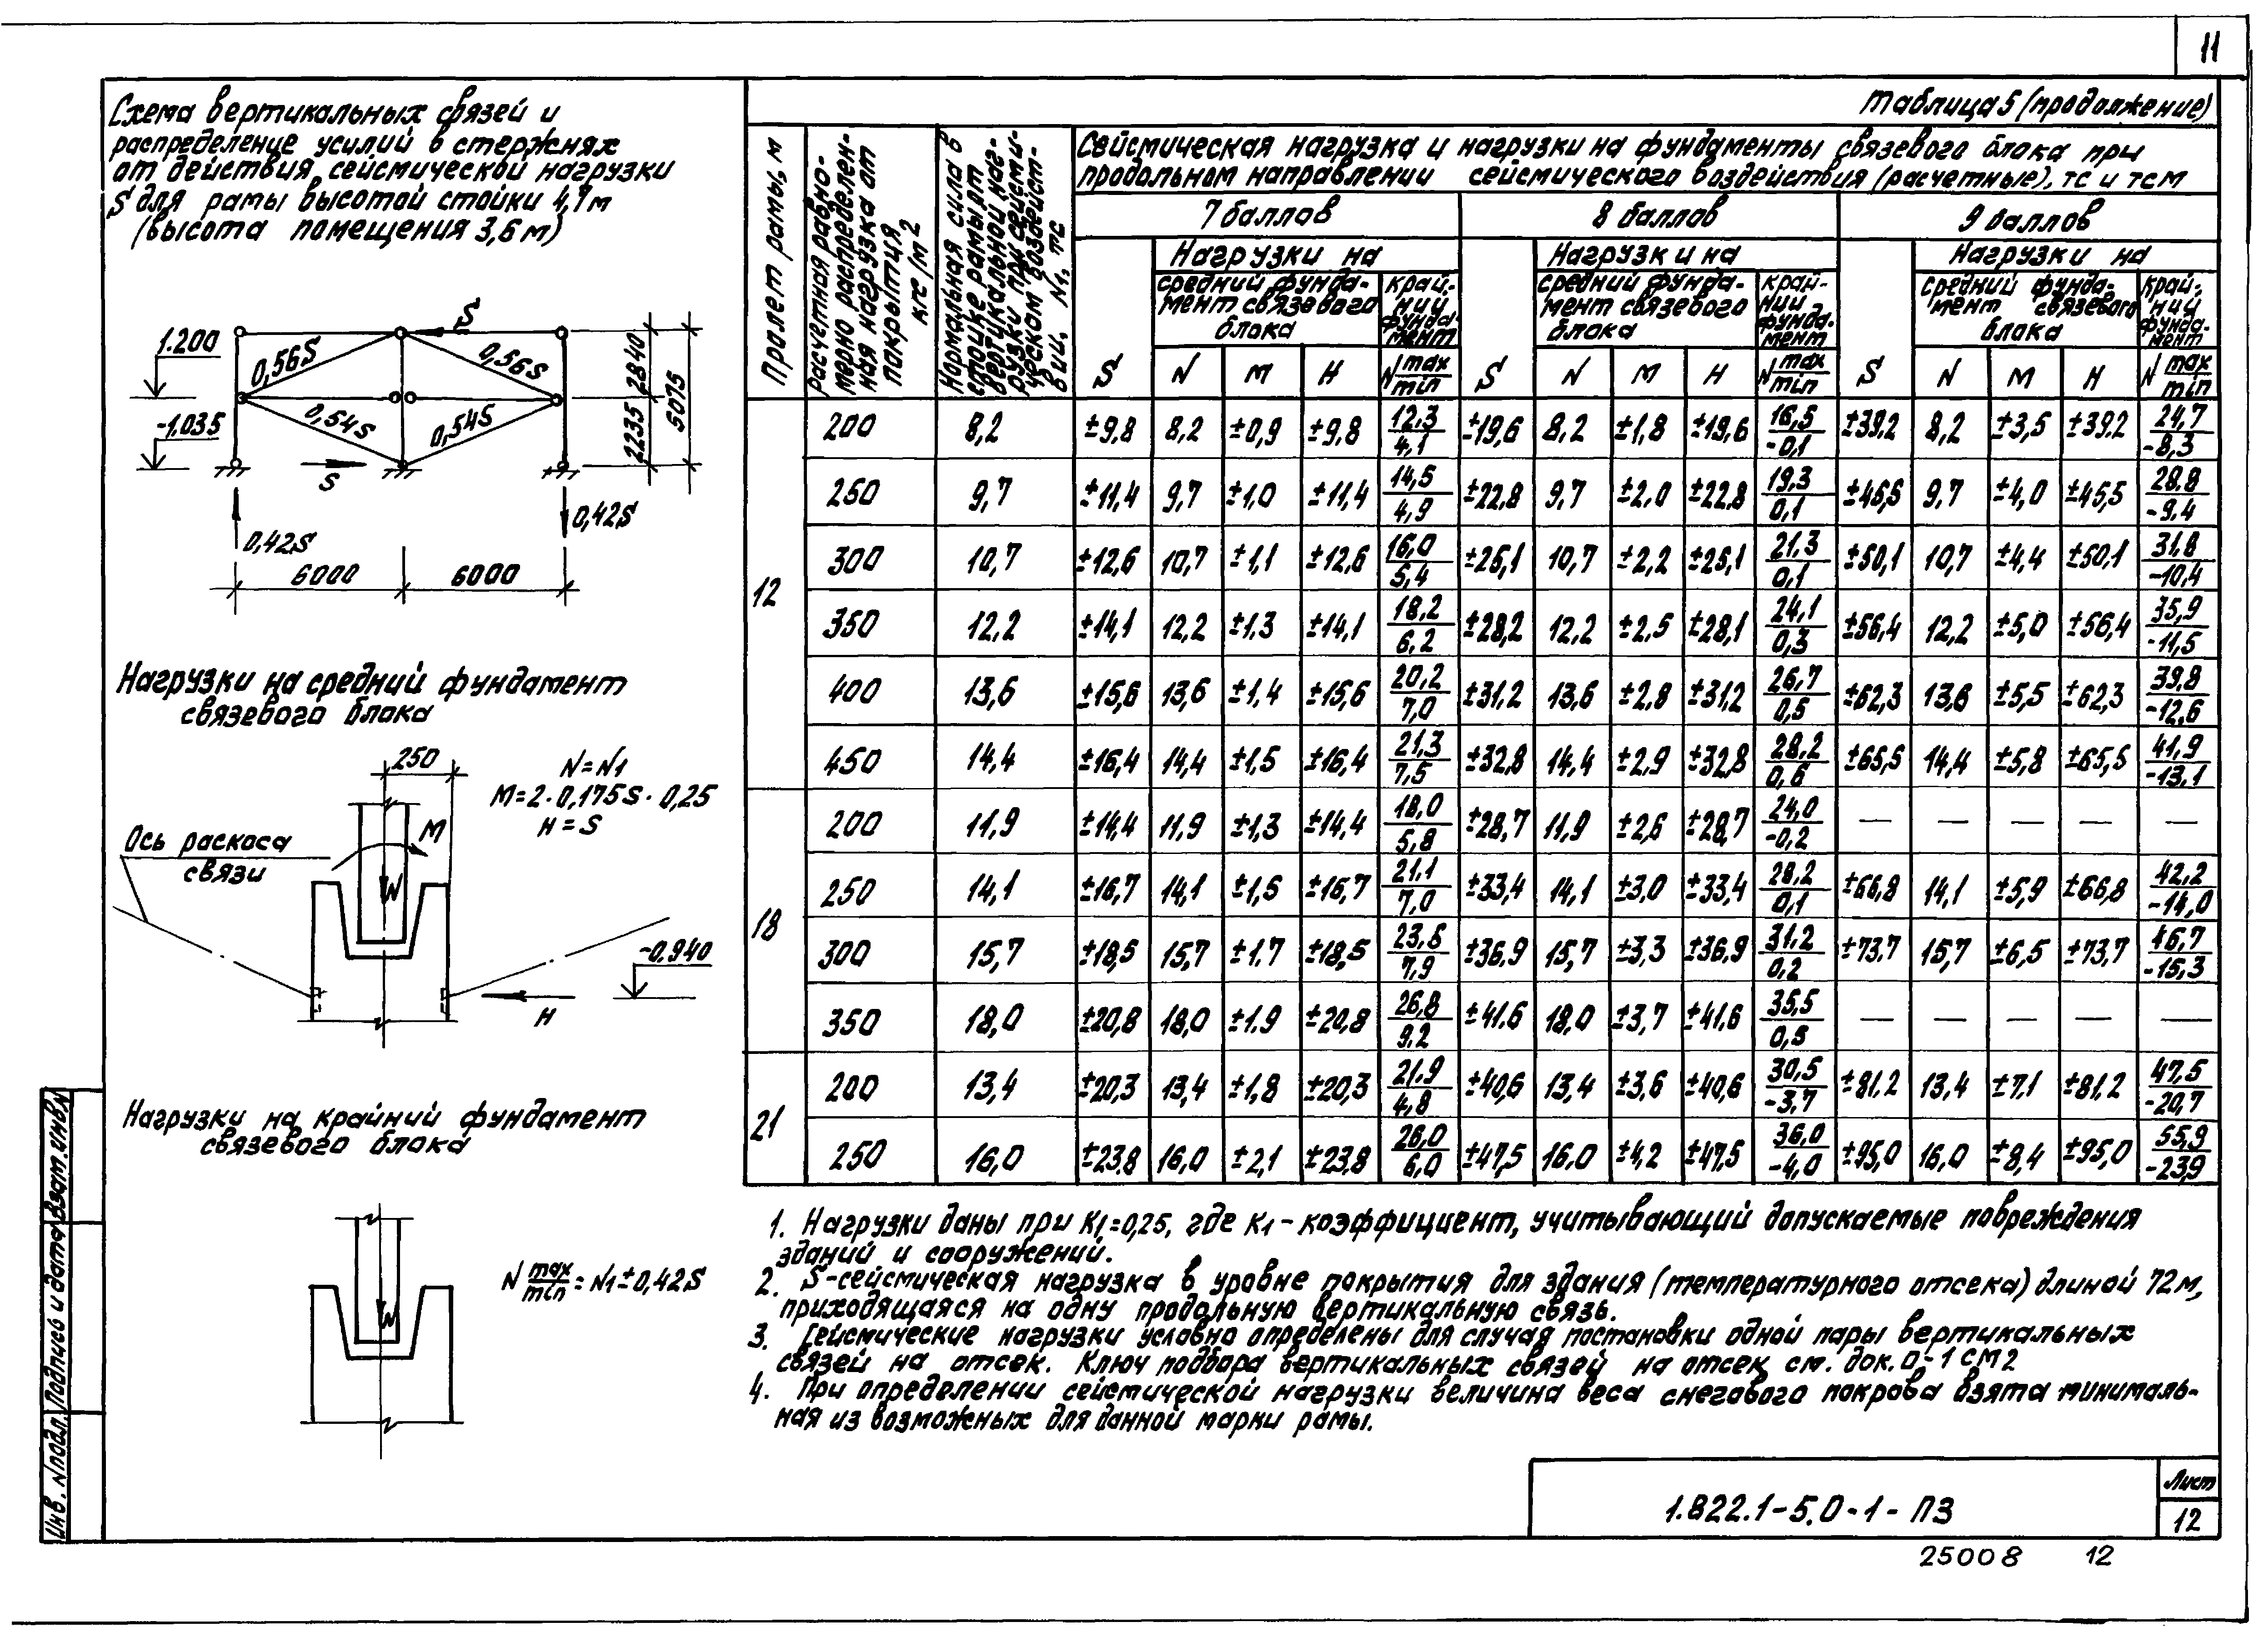 11
Схема вертикальных связей и
распределение усилий в стержнях
от действия сейсмической нагрузки
S для рамы высотой стойки 4,7м
(высота помещения 3,6м)
S
1.200
0,56S 0,56S
2840
5075
-1.035
0,54S 0,54S
2235
S
0,42S
0,42S
6000 6000
Нагрузки на средний фундамент
связевого блока
250
N=N1
M=2·0,175S·0,25
H=S
M
Ось раскоса
связи
N
-0.940
H
Нагрузки на крайний фундамент
связевого блока
N max/min = N1±0,42S
N
Таблица 5 (продолжение)
Пролет рамы, м
Расчетная равно-
мерно распределен-
ная нагрузка от
покрытия
кгс/м2
Нормальная сила в
стойке рамы от
вертикальной наг-
рузки при сейсми-
ческом воздейст-
вии, N1, тс
Сейсмическая нагрузка и нагрузки на фундаменты связевого блока при
продольном направлении сейсмического воздействия (расчетные), тс и тсм
7 баллов 8 баллов 9 баллов
Нагрузки на Нагрузки на Нагрузки на
средний фунда- край- средний фунда- край- средний фунда- край-
мент связевого ний мент связевого ний мент связевого ний
блока фунда- блока фунда- блока фунда-
мент мент мент
S N M H N max/min S N M H N max/min S N M H N max/min
12
200 8,2 ±9,8 8,2 ±0,9 ±9,8 12,3/4,1 ±19,6 8,2 ±1,8 ±19,6 16,5/-0,1 ±39,2 8,2 ±3,5 ±39,2 24,7/-8,3
250 9,7 ±11,4 9,7 ±1,0 ±11,4 14,5/4,9 ±22,8 9,7 ±2,0 ±22,8 19,3/0,1 ±45,5 9,7 ±4,0 ±45,5 28,8/-9,4
300 10,7 ±12,6 10,7 ±1,1 ±12,6 16,0/5,4 ±25,1 10,7 ±2,2 ±25,1 21,3/0,1 ±50,1 10,7 ±4,4 ±50,1 31,8/-10,4
350 12,2 ±14,1 12,2 ±1,3 ±14,1 18,2/6,2 ±28,2 12,2 ±2,5 ±28,1 24,1/0,3 ±56,4 12,2 ±5,0 ±56,4 35,9/-11,5
400 13,6 ±15,6 13,6 ±1,4 ±15,6 20,2/7,0 ±31,2 13,6 ±2,8 ±31,2 26,7/0,5 ±62,3 13,6 ±5,5 ±62,3 39,8/-12,6
450 14,4 ±16,4 14,4 ±1,5 ±16,4 21,3/7,5 ±32,8 14,4 ±2,9 ±32,8 28,2/0,6 ±65,5 14,4 ±5,8 ±65,5 41,9/-13,1
18
200 11,9 ±14,4 11,9 ±1,3 ±14,4 18,0/5,8 ±28,7 11,9 ±2,6 ±28,7 24,0/-0,2 — — — — —
250 14,1 ±16,7 14,1 ±1,5 ±16,7 21,1/7,0 ±33,4 14,1 ±3,0 ±33,4 28,2/0,1 ±66,8 14,1 ±5,9 ±66,8 42,2/-14,0
300 15,7 ±18,5 15,7 ±1,7 ±18,5 23,5/7,9 ±36,9 15,7 ±3,3 ±36,9 31,2/0,2 ±73,7 15,7 ±6,5 ±73,7 46,7/-15,3
350 18,0 ±20,8 18,0 ±1,9 ±20,8 26,8/9,2 ±41,6 18,0 ±3,7 ±41,6 35,5/0,5 — — — — —
21
200 13,4 ±20,3 13,4 ±1,8 ±20,3 21,9/4,8 ±40,6 13,4 ±3,6 ±40,6 30,5/-3,7 ±81,2 13,4 ±7,1 ±81,2 47,5/-20,7
250 16,0 ±23,8 16,0 ±2,1 ±23,8 26,0/6,0 ±47,5 16,0 ±4,2 ±47,5 36,0/-4,0 ±95,0 16,0 ±8,4 ±95,0 55,9/-23,9
1. Нагрузки даны при К1=0,25, где К1 - коэффициент, учитывающий допускаемые повреждения
зданий и сооружений.
2. S-сейсмическая нагрузка в уровне покрытия для здания (температурного отсека) длиной 72м,
приходящаяся на одну продольную вертикальную связь.
3. Сейсмические нагрузки условно определены для случая постановки одной пары вертикальных
связей на отсек. Ключ подбора вертикальных связей на отсек см. док. 0-1 СМ2
4. При определении сейсмической нагрузки величина веса снегового покрова взята минималь-
ная из возможных для данной марки рамы.
Инв. N подл. Подпись и дата Взам. инв N
1.822.1-5.0-1-ПЗ
Лист
12
25008 12